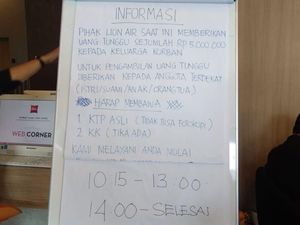 INFORMASI
PIHAK LION AIR SAAT INI MEMBERIKAN
UANG TUNGGU SEJUMLAH RP 5.000.000
KEPADA KELUARGA KORBAN
UNTUK PENGAMBILAN UANG TUNGGU
DIBERIKAN KEPADA ANGGOTA TERDEKAT
(ISTRI/SUAMI/ANAK/ORANGTUA)
HARAP MEMBAWA
1. KTP ASLI (TIDAK BISA FOTOKOPI)
2. KK (JIKA ADA)
KAMI MELAYANI ANDA MULAI
10.15 - 13.00
14.00 - SELESAI
WEB CORNER